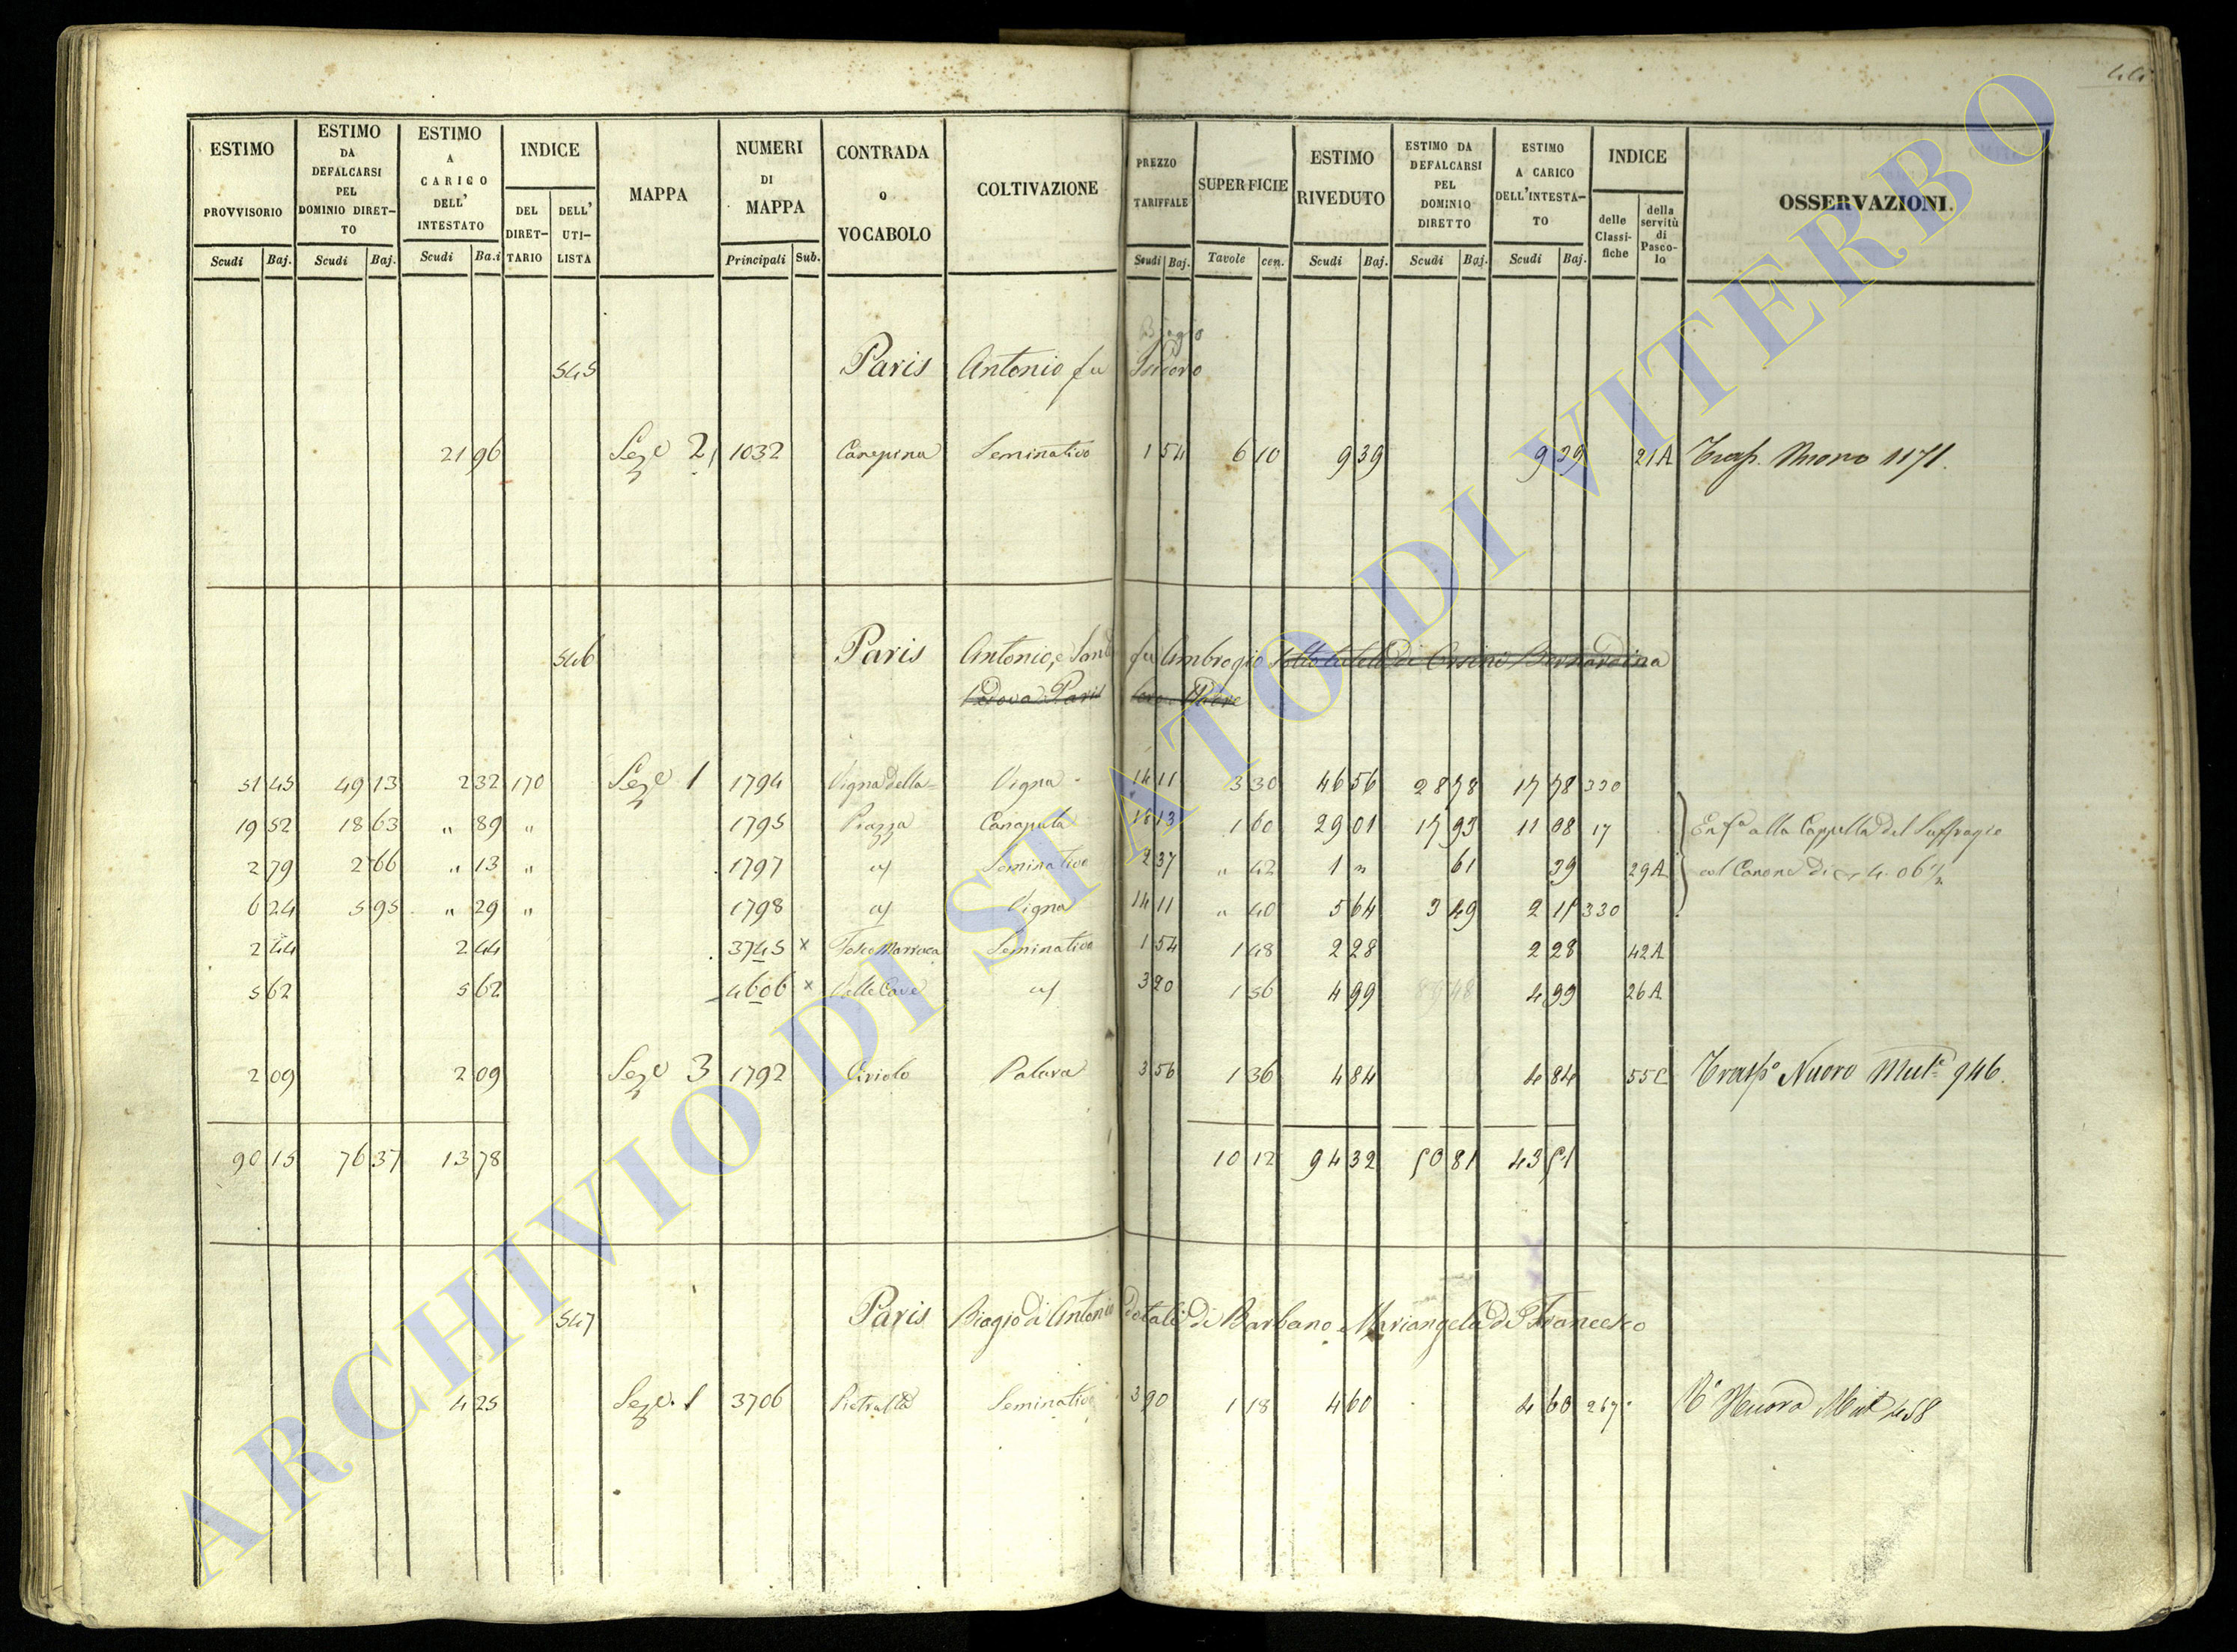 ESTIMO PROVVISORIO Scudi Baj.
ESTIMO DA DEFALCARSI PEL DOMINIO DIRET-TO Scudi Baj.
ESTIMO A CARICO DELL' INTESTATO Scudi Ba.i
INDICE DEL DIRET-TARIO DELL' UTI-LISTA
MAPPA
NUMERI DI MAPPA Principali Sub.
CONTRADA o VOCABOLO
COLTIVAZIONE
PREZZO TARIFFALE Scudi Baj.
SUPERFICIE Tavole cen.
ESTIMO RIVEDUTO Scudi Baj.
ESTIMO DA DEFALCARSI PEL DOMINIO DIRETTO Scudi Baj.
ESTIMO A CARICO DELL'INTESTA-TO Scudi Baj.
INDICE delle Classi-fiche della servitù di Pasco-lo
OSSERVAZIONI.
Biagio
545 Paris Antonio fu
21 96 Seze 2 1032 Canepina Seminativo 1 54 6 10 9 39 9 39 21A Trasp. Nuovo 1171.
546 Paris Antonio, e fu Ambrogio sotto tutela di Orsini Bernardina
Vedova Paris loro Madre
51 45 49 13 2 32 170 Seze 1 1794 Vigna della= Vigna 14 11 3 30 46 56 28 78 17 78 330
19 52 18 63 " 89 " 1795 Piazza Canaputa 18 13 1 60 29 01 17 93 11 08 17 Enfa alla Cappella del Suffragio
2 79 2 66 " 13 " 1797 Seminativo 2 37 " 42 1 " 61 39 29A col Canone di 4. 06
6 24 5 95 " 29 " 1798 Vigna 14 11 " 40 5 64 3 49 2 15 330
2 44 2 44 3745 x Seminativo 1 54 1 48 2 28 2 28 42A
5 62 5 62 4606 x 3 20 1 56 4 99 4 99 26A
2 09 2 09 Seze 3 1792 3 56 1 36 4 84 4 84 55C Traspo Nuovo Mute 946.
90 15 76 37 13 78 10 12 94 32 50 81 43 51
547 Paris Biagio di Antonio dotali di Barbano Mariangela di Francesco
4 25 Seze. 1 3706 Pietralta Seminativo 3 90 1 18 4 60 4 60 267 Nuova Mut 458
ARCHIVIO DI STATO DI VITERBO